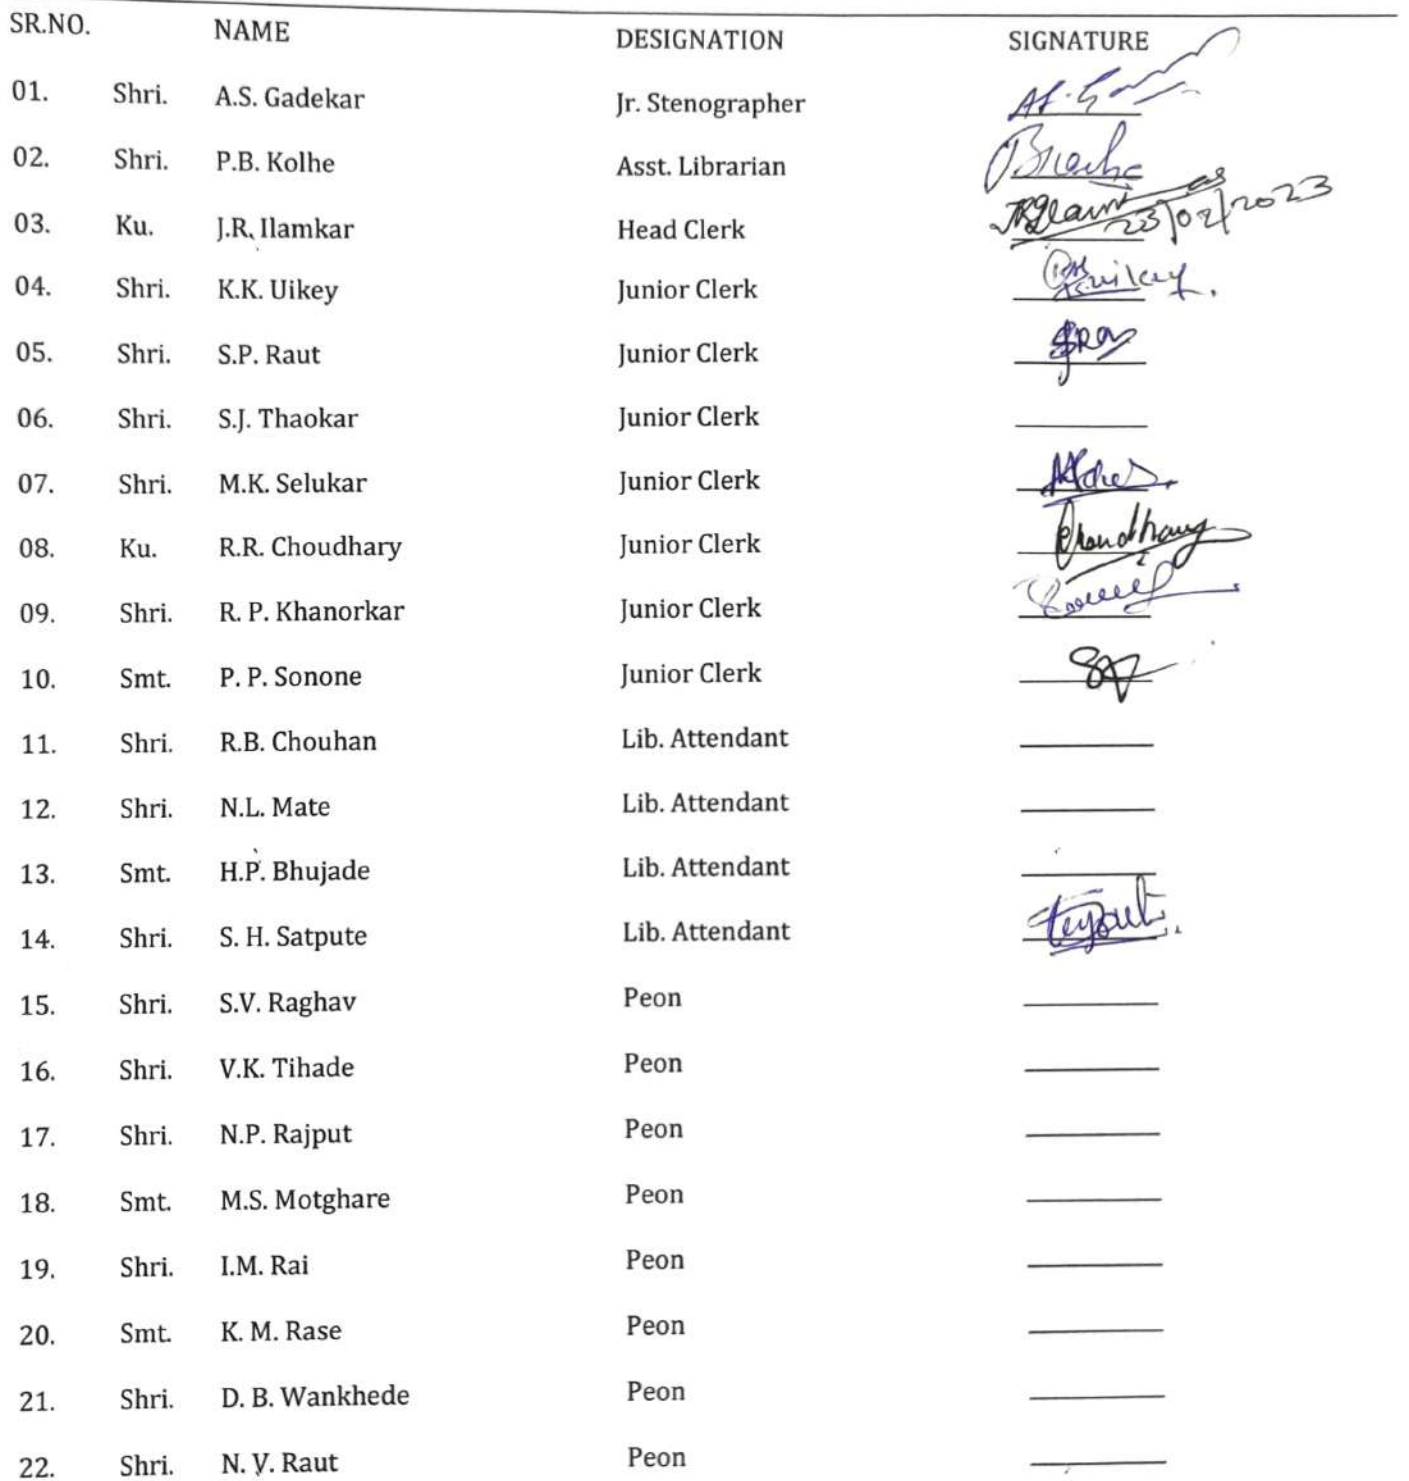 SR.NO. NAME DESIGNATION SIGNATURE
01. Shri. A.S. Gadekar Jr. Stenographer
02. Shri. P.B. Kolhe Asst. Librarian
03. Ku. J.R. Ilamkar Head Clerk 23/02/2023
04. Shri. K.K. Uikey Junior Clerk
05. Shri. S.P. Raut Junior Clerk
06. Shri. S.J. Thaokar Junior Clerk
07. Shri. M.K. Selukar Junior Clerk
08. Ku. R.R. Choudhary Junior Clerk Choudhary
09. Shri. R. P. Khanorkar Junior Clerk
10. Smt. P. P. Sonone Junior Clerk
11. Shri. R.B. Chouhan Lib. Attendant
12. Shri. N.L. Mate Lib. Attendant
13. Smt. H.P. Bhujade Lib. Attendant
14. Shri. S. H. Satpute Lib. Attendant
15. Shri. S.V. Raghav Peon
16. Shri. V.K. Tihade Peon
17. Shri. N.P. Rajput Peon
18. Smt. M.S. Motghare Peon
19. Shri. I.M. Rai Peon
20. Smt. K. M. Rase Peon
21. Shri. D. B. Wankhede Peon
22. Shri. N. V. Raut Peon